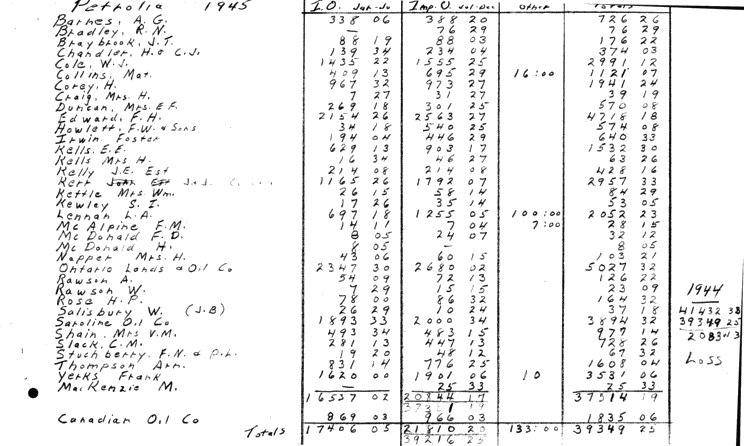 Petrolia 1945 I.O. Jan-Ju Imp. O. Jul-Dec Other Totals
Barnes, A. G. 338 06 388 20 726 26
Bradley, R. N. — 76 29 76 29
Braybrook, J. T. 88 19 88 03 176 22
Chandler, H. & C. J. 139 34 234 04 374 03
Cole, W. J. 1435 22 1555 25 2991 12
Collins, Mat. 409 13 695 29 16:00 1121 07
Corey, H. 967 32 973 27 1941 24
Craig, Mrs. H. 7 27 31 27 39 19
Duncan, Mrs. E F. 269 18 301 25 570 08
Edward, F. H. 2154 26 2563 27 4718 18
Howlett, F. W. & Sons 34 18 540 25 574 08
Irwin, Foster 194 04 446 29 640 33
Kells, E. E. 629 13 903 17 1532 30
Kells Mrs H. 16 34 46 27 63 26
Kelly J. E. Est 214 08 214 08 428 16
Kerr J. J. 1165 26 1792 07 2957 33
Kettle Mrs Wm. 26 15 58 14 84 29
Kewley S. I. 17 26 35 14 53 05
Lennan L. A. 697 18 1255 05 100:00 2052 23
McAlpine F. M. 14 11 7 04 7:00 28 15
McDonald F. D. 8 05 24 07 32 12
McDonald H. 8 05 — 8 05
Napper Mrs. H. 43 06 60 15 103 21
Ontario Lands & Oil Co 2347 30 2680 02 5027 32
Rawson A. 54 09 72 13 126 22
Rawson W. 7 29 15 15 23 09
Rose H. P. 78 00 86 32 164 32
Salisbury W. (J.B) 26 29 10 24 37 18
Saroline Oil Co 1893 33 2000 34 3894 32
Shain, Mrs V. M. 493 34 483 15 977 14
Slack, C. M. 281 13 447 13 728 26
Stuchberry, F. N. & P. L. 19 20 48 12 67 32
Thompson Arn. 831 14 776 25 1608 04
Yerks Frank 1620 00 1901 06 10 3531 06
MacKenzie M. — 25 33 25 33
16537 02 20844 17 37514 19
37381 19
Canadian Oil Co 869 03 966 03 1835 06
Totals 17406 05 21810 20 133:00 39349 25
39216 25
1944
41432 38
39349 25
2083 13
Loss